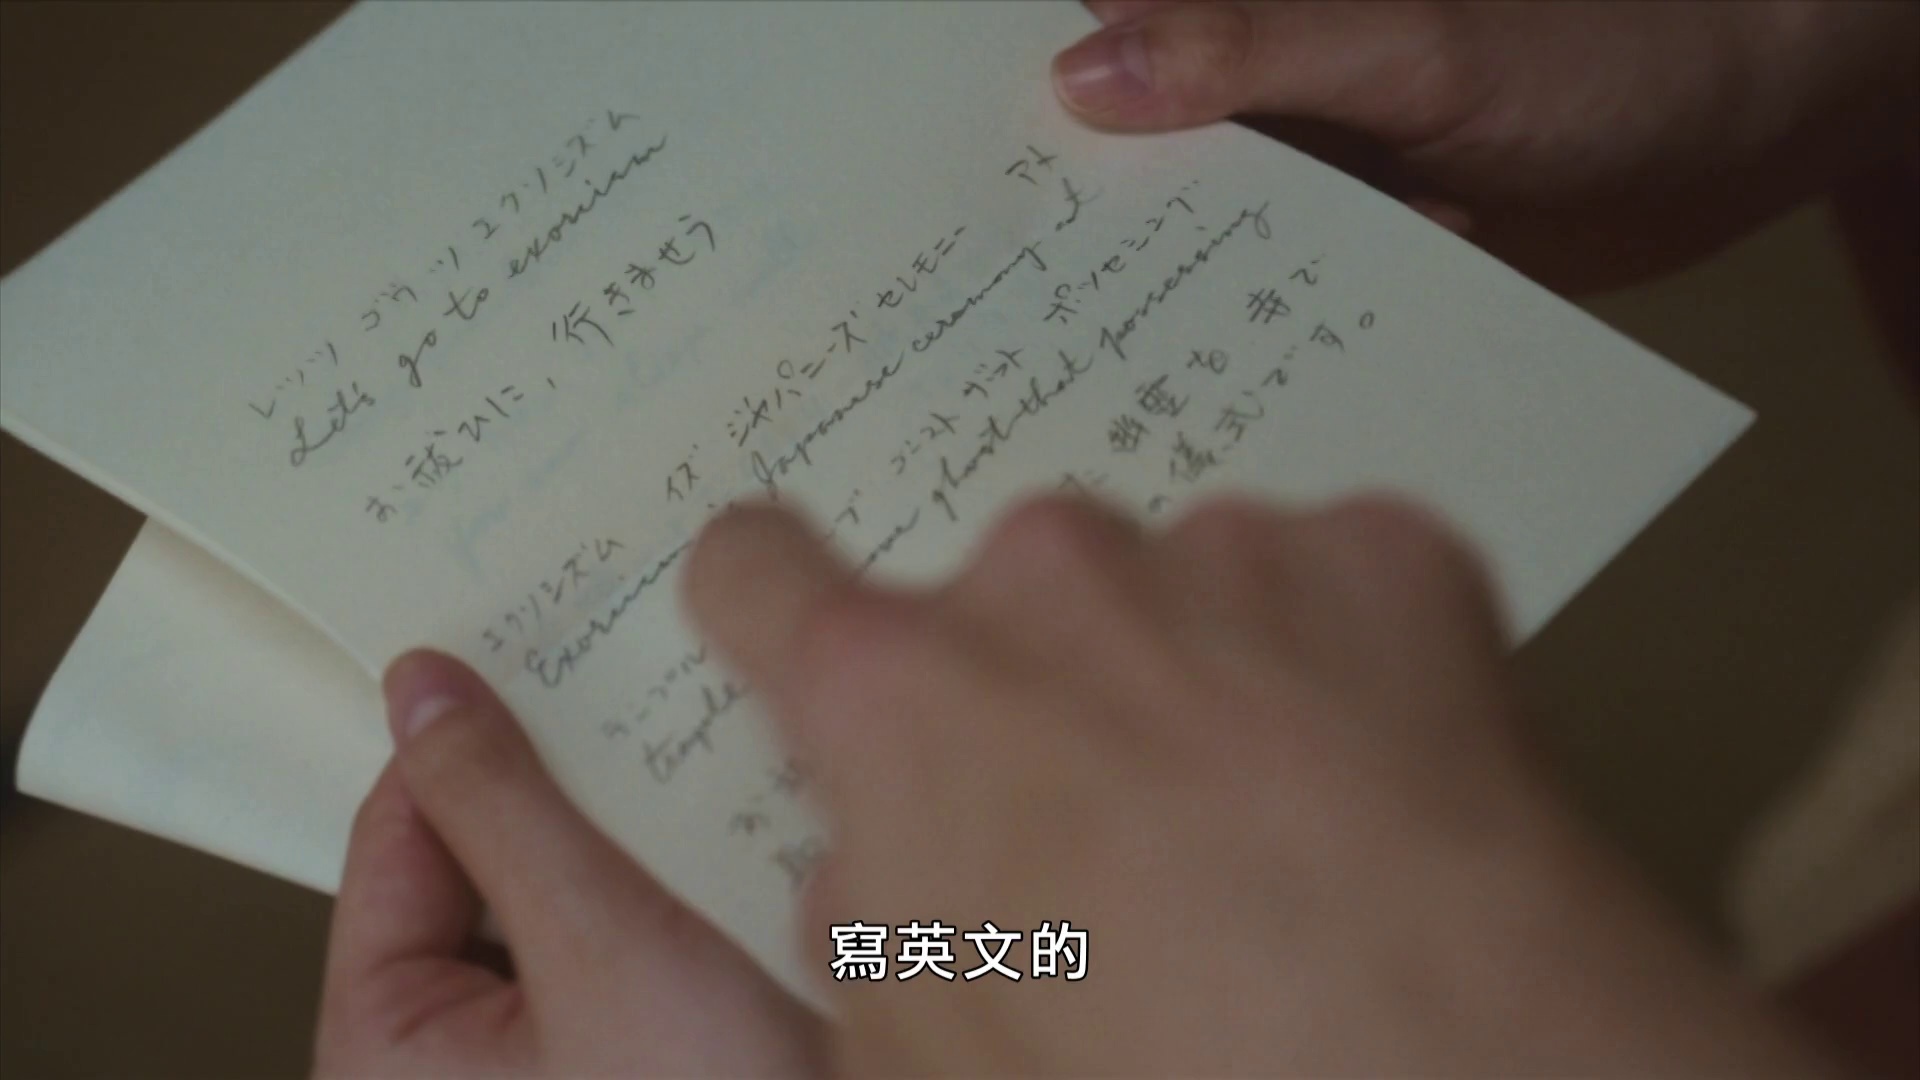 レッツ ゴウ ツ エクソシズム
Let's go to exorism
お祓ひに、行きませう
エクソシズム イズ ジャパニーズ セレモニー アト
Exorism is Japanese ceremony at
テンプル ゴースト ザット ポッセシング
temple ghost that possessing
幽霊を 寺で
の儀式です。
寫英文的